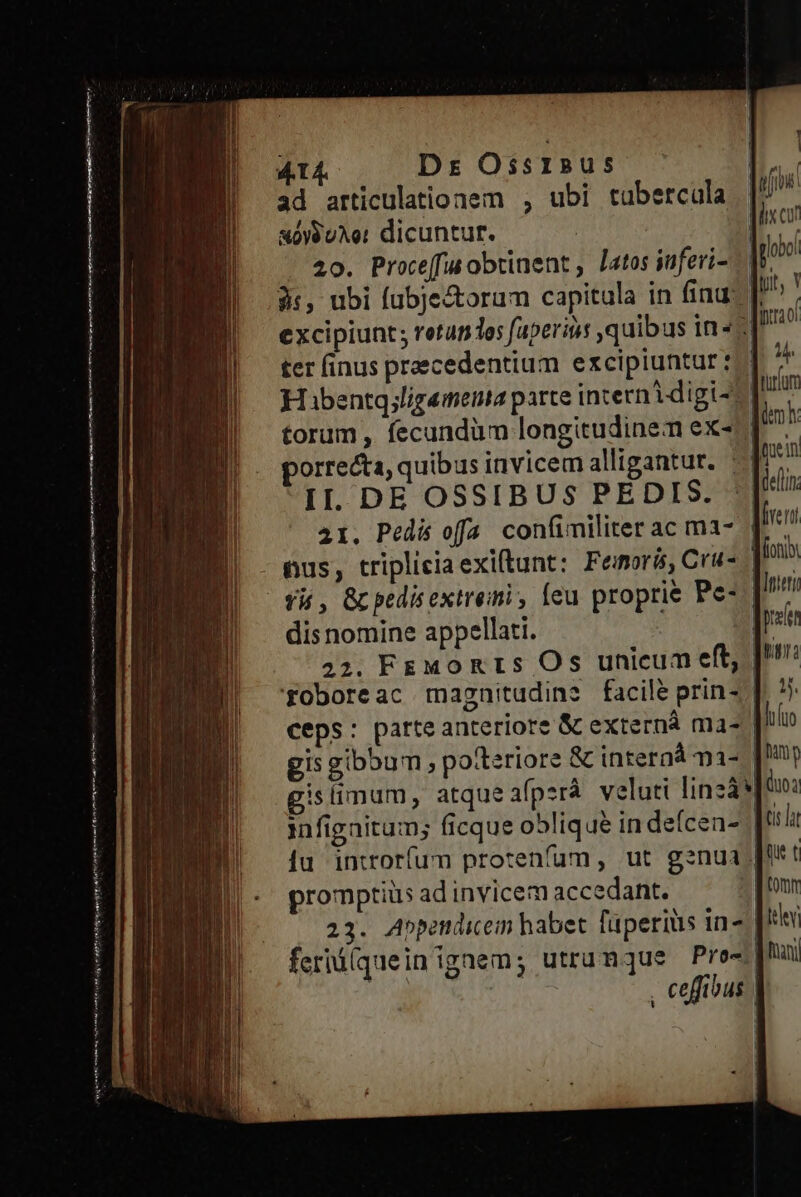 414 DE OSSIBUS
ad articulationem , ubi tubercula
κόνδυλοι dicuntur.
20. Proceſſus obtinent , latos inferi-
ùs, ubi ſubjectorum capitula in ſinu
excipiunt; rotundos ſuperiùs , quibus in-
ter ſinus præcedentium excipiuntur :
Habentq; ligamenta parte internâ digi-
torum , ſecundùm longitudinem ex-
porrecta, quibus invicem alligantur.
II. DE OSSIBUS PEDIS.
21. Pedis oſſa conſimiliter ac ma-
nus, triplicia exiſtunt: Femoris, Cru-
ris , & pedis extremi , ſeu propriè Pe-
dis nomine appellati.
22. FEMORIS Os unicum eſt,
robore ac magnitudine facilè prin-
ceps : parte anteriore & externâ ma-
gis gibbum , poſteriore & internâ ma-
gis ſimum, atque aſperâ veluti lineâ
inſignitum; ſicque obliquè in deſcen-
ſu introrſum protenſum , ut genua
promptiùs ad invicem accedant.
23. Appendicem habet ſuperiùs in-
feriúſque in ignem ; utrumque Pro-
ceſſibus